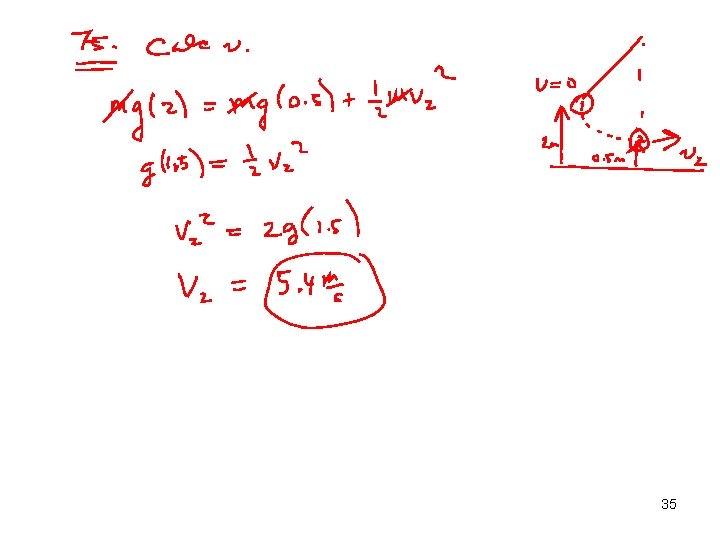 75. Calc v.
mg(2) = mg(0.5) + 1/2 mv₂²
g(1.5) = 1/2 v₂²
v₂² = 2g(1.5)
V₂ = 5.4 m/s
v=0
1
2m
0.5m
2
v₂
35